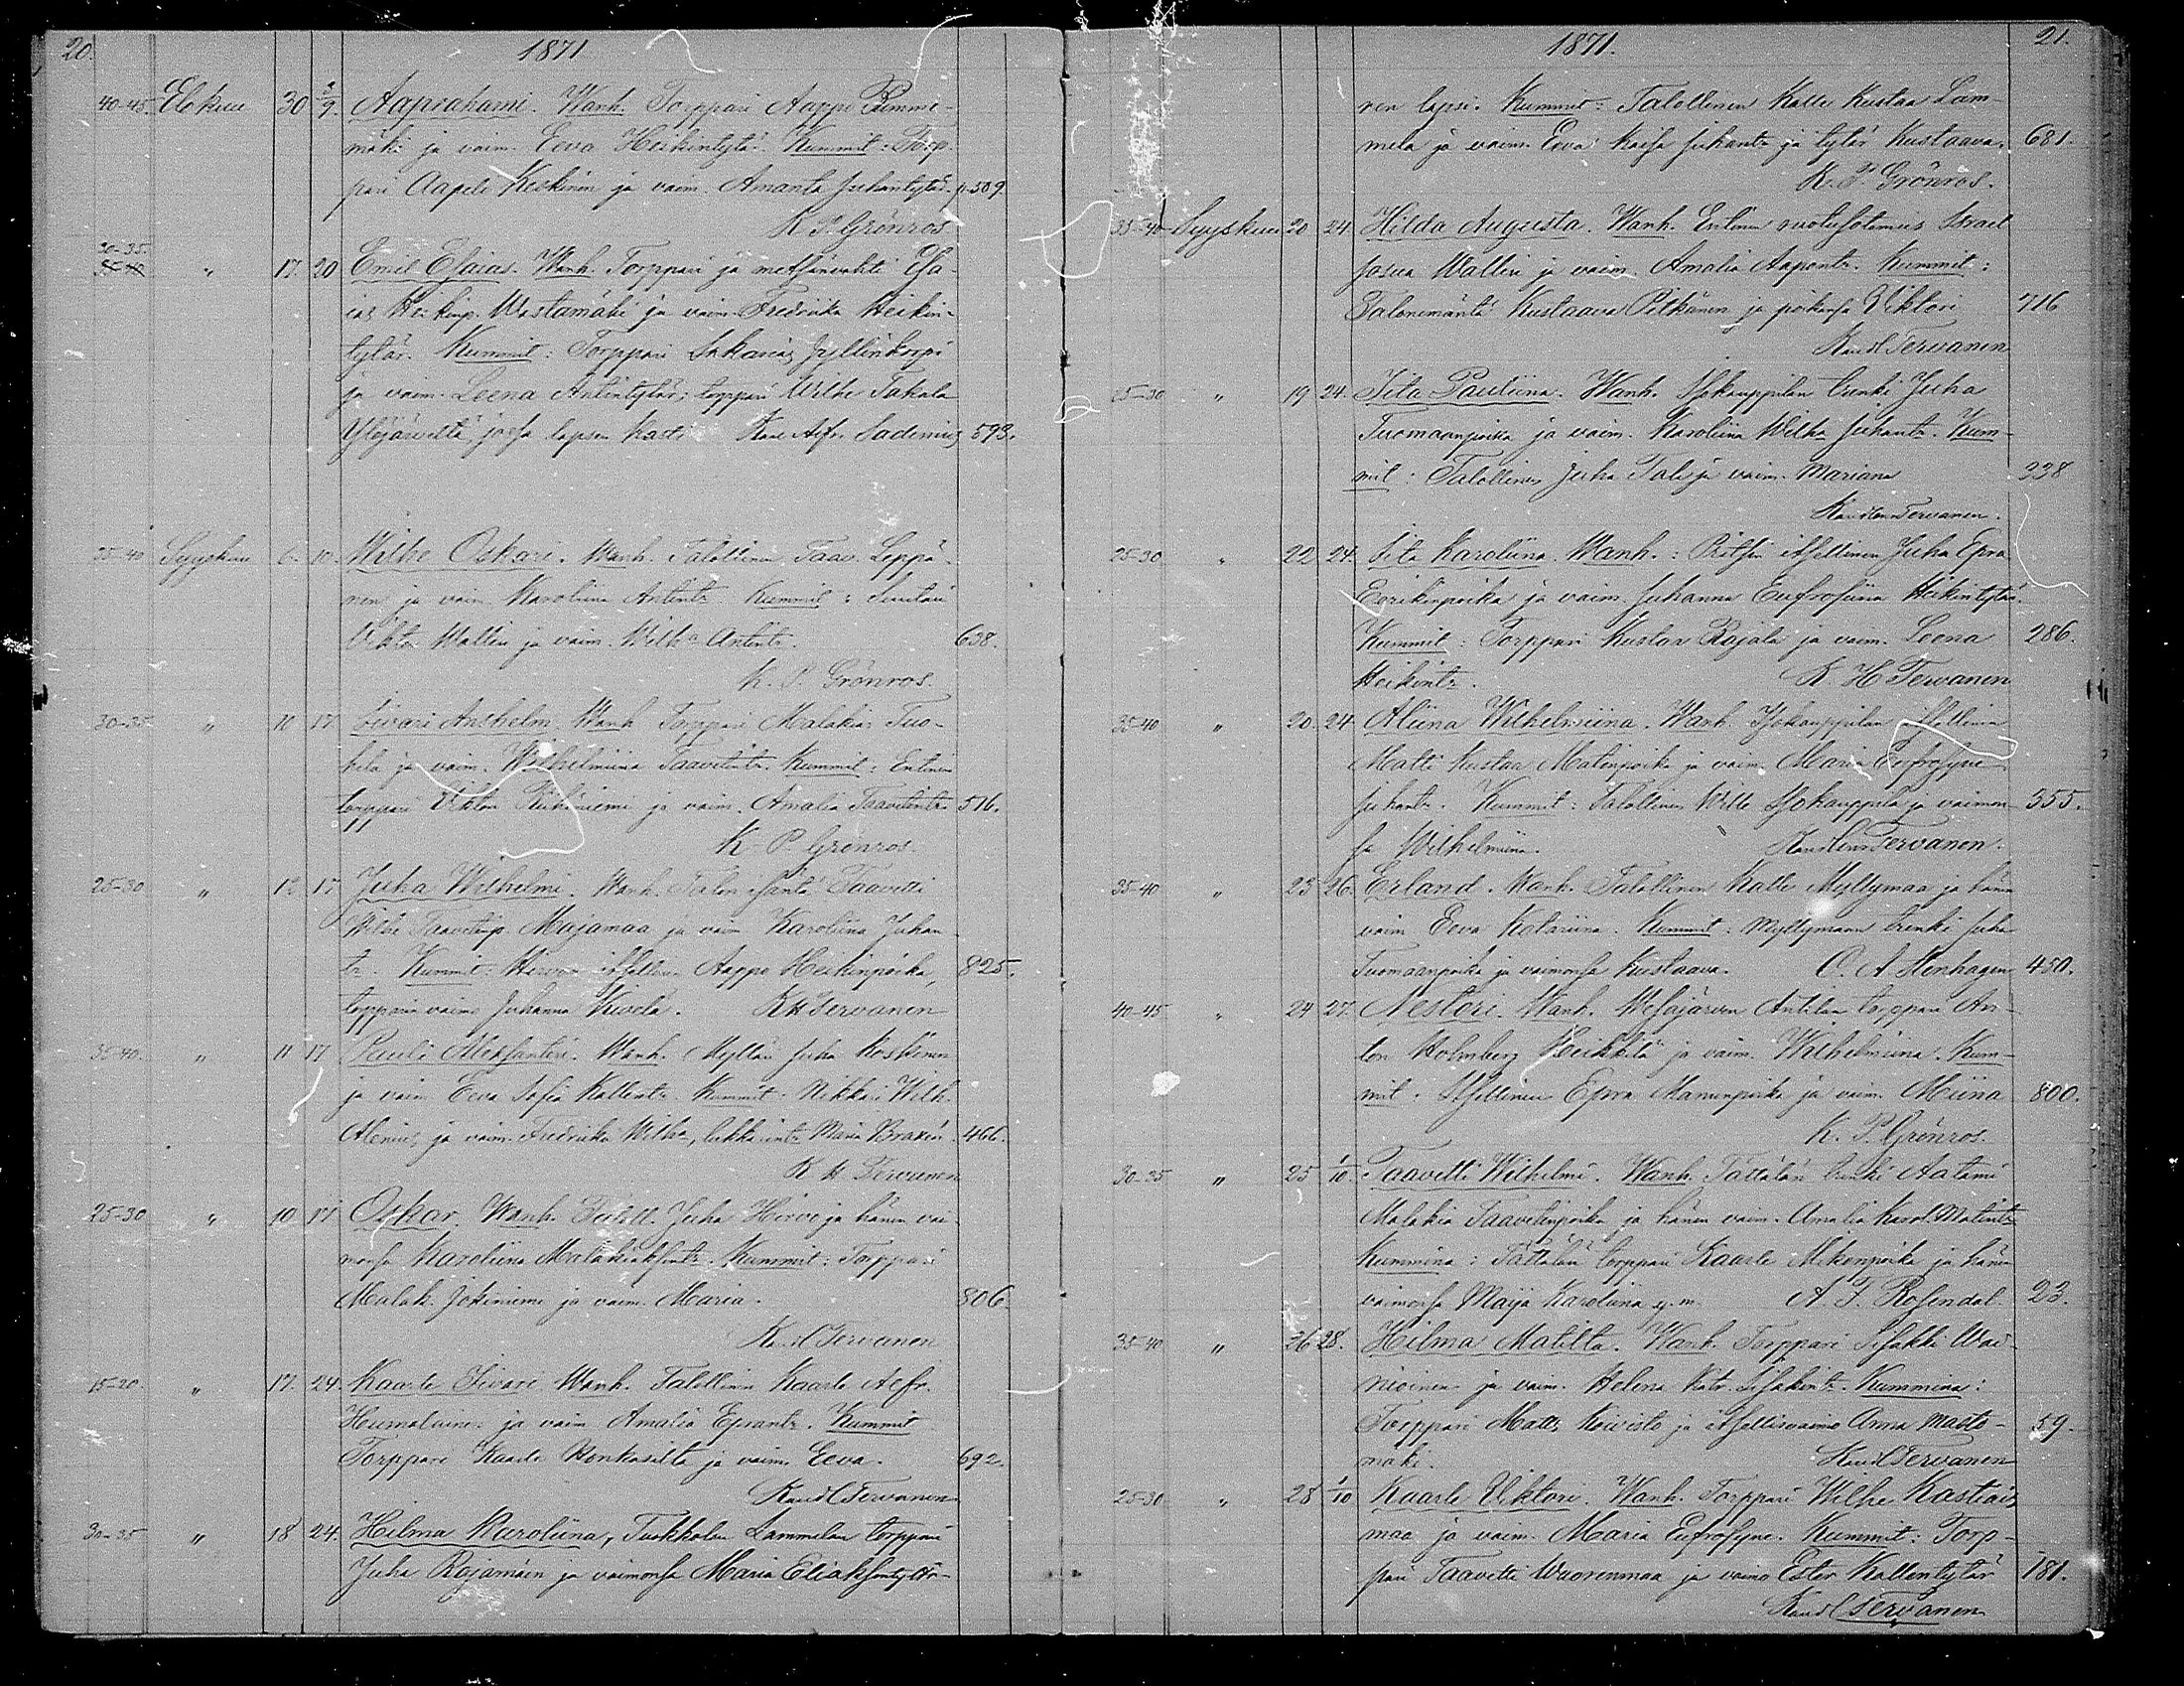 20. 1871
40-45. Elokuu 30 3/9. Aaprahami. Wanh. Torppari Aappo Pummi-
mäki ja vaim. Eeva Heikintytär. Kummit: Torp-
pari Aapeli Keskinen ja vaim. Amanta Juhantytär. p. 509.
K. P. Grönros.
30-35.
35-40 " 17. 20 Emil Esaias. Wanh. Torppari ja metsänvahti Esa-
ias Heikinp. Wastamäki ja vaim. Fredrika Heikin-
tytär. Kummit: Torppari Sakarias Jyllinkorpi
ja vaim. Leena Antintytär; torppari Wilhe Takala
Ylöjärveltä, jossa lapsen kaste Karl Alfr. Sadenius 593.
35-40 Syyskuu 6. 10. Wilhe Oskari. Wanh. Talollinen Taav. Leppä-
nen ja vaim. Karoliina Antintr. Kummit: Suutari
Viktor Wallin ja vaim. Wilh:a Antintr. 638.
K. P. Grönros.
30-35 " 10 17. Iivari Anshelm. Wanh. Torppari Malakias Tuo-
hela ja vaim. Wilhelmiina Taavetintr. Kummit: Entinen
torppari Viktor Riihiniemi ja vaim. Amalia Taavetintr. 516.
K. P. Grönros.
25-30 " 12 17 Juha Wilhelmi. Wanh. Talon isäntä Taavetti
Wilhe Taavetinp. Majamaa ja vaim Karoliina Juhan-
tr. Kummit: Hirvon itsellinen Aappo Heikinpoika, 825.
torpparin vaimo Juhanna Kivelä. K H Tervanen
35-40. " 11 17 Pauli Aleksanteri. Wanh. Mylläri Juha Koskinen
ja vaim Eeva Sofia Kallentr. Kummit: Nikkari Wilh.
Alenius ja vaim. Fredrika Wilh:a, lukkarintr. Maria Braxén. 466.
K. H. Tervanen
25-30 " 10 17 Oskar. Wanh. Taloll. Juha Hirvo ja hänen vai-
monsa Karoliina Malakiaksentr. Kummit: Torppari
Malak. Jokiniemi ja vaim. Maria. 806.
K. H. Tervanen
15-20. " 17. 24. Kaarle Iivari Wanh. Talollinen Kaarle Alfr.
Humaloinen ja vaim Amalia Eprantr. Kummit
Torppari Kaarle Honkasilta ja vaim. Eeva. 692.
Kaarl Tervanen
30-35 " 18 24. Hilma Karoliina, Tuokkolan Lammelan torppari
Juha Rajamäen ja vaimonsa Maria Eliaksentyttä-
1871. 21.
ren lapsi. Kummit: Talollinen Kalle Kustaa Lam-
mela ja vaim. Eeva Kaisa Juhantr ja tytär Kustaava. 681.
K. P. Grönros.
35-40 Syyskuu 20 24. Hilda Augusta. Wanh. Entinen ruotusotamies Israel
Josua Wallin ja vaim. Amalia Aapontr. Kummit:
Talonemäntä Kustaava Pitkänen ja poikansa Viktori 716
Kaarl Tervanen
25-30 " 19 24. Iita Pauliina. Wanh. Isokauppilan renki Juha
Tuomaanpoika ja vaim. Karoliina Wilh:a Juhantr. Kum-
mit: Talollinen Juha Tala ja vaim. Mariana 338
Tervanen.
25-30 " 22 24. Iita Karoliina. Wanh.: Pritsin itsellinen Juha Epra
Eerikinpoika ja vaim. Juhanna Eufrosiina Heikintytär.
Kummit: Torppari Kustaa Rajala ja vaim. Leena 286.
Heikintr. K. H Tervanen
35-40 " 20. 24. Aliina Wilhelmiina. Wanh. Isokauppilan itsellinen
Matti Kustaa Matinpoika ja vaim. Maria Eufrosyne
Juhantr. Kummit: Talollinen Wille Isokauppila ja vaimon- 355.
sa Wilhelmiina. Tervanen.
35-40 " 23 26. Erland. Wanh. Talollinen Kalle Myllymaa ja hänen
vaim Eeva Katariina. Kummit: Myllymaan trenki Juha
Tuomaanpoika ja vaimonsa Kustaava. O. A Stenhagen 450.
40-45 " 24 27. Nestori. Wanh. Wesajärven Antilan torppari An-
ton Holmberg Heikkilä ja vaim. Wilhelmiina. Kum-
mit. Itsellinen Epra Manunpoika ja vaim. Miina 800.
K. P. Grönros.
30-35 " 25 1/10. Taavetti Wilhelmi. Wanh. Tättälän trenki Aatami
Malakia Taavetinpoika ja hänen vaim. Amalia Karol. Matintr
Kummina: Tättälän torppari Kaarle Mikonpoika ja hänen
vaimonsa Maija Karoliina y. m. A. F. Rosendal. 23.
35-40 " 26 28. Hilma Matilta. Wanh. Torppari Iisakki Wäi-
niöinen ja vaim. Helena Katr. Iisakintr. Kummina:
Torppari Matts Koivisto ja itsellisvaimo Anna Maato- 59.
mäki. Kaarl Tervanen
25-30 " 28 1/10 Kaarle Viktori. Wanh. Torppari Wilhe Kastais-
maa ja vaim. Maria Eufrosyne. Kummit: Torp-
pari Taavetti Wuorenmaa ja vaimo Ester Kallentytär 181.
Kaarl Tervanen